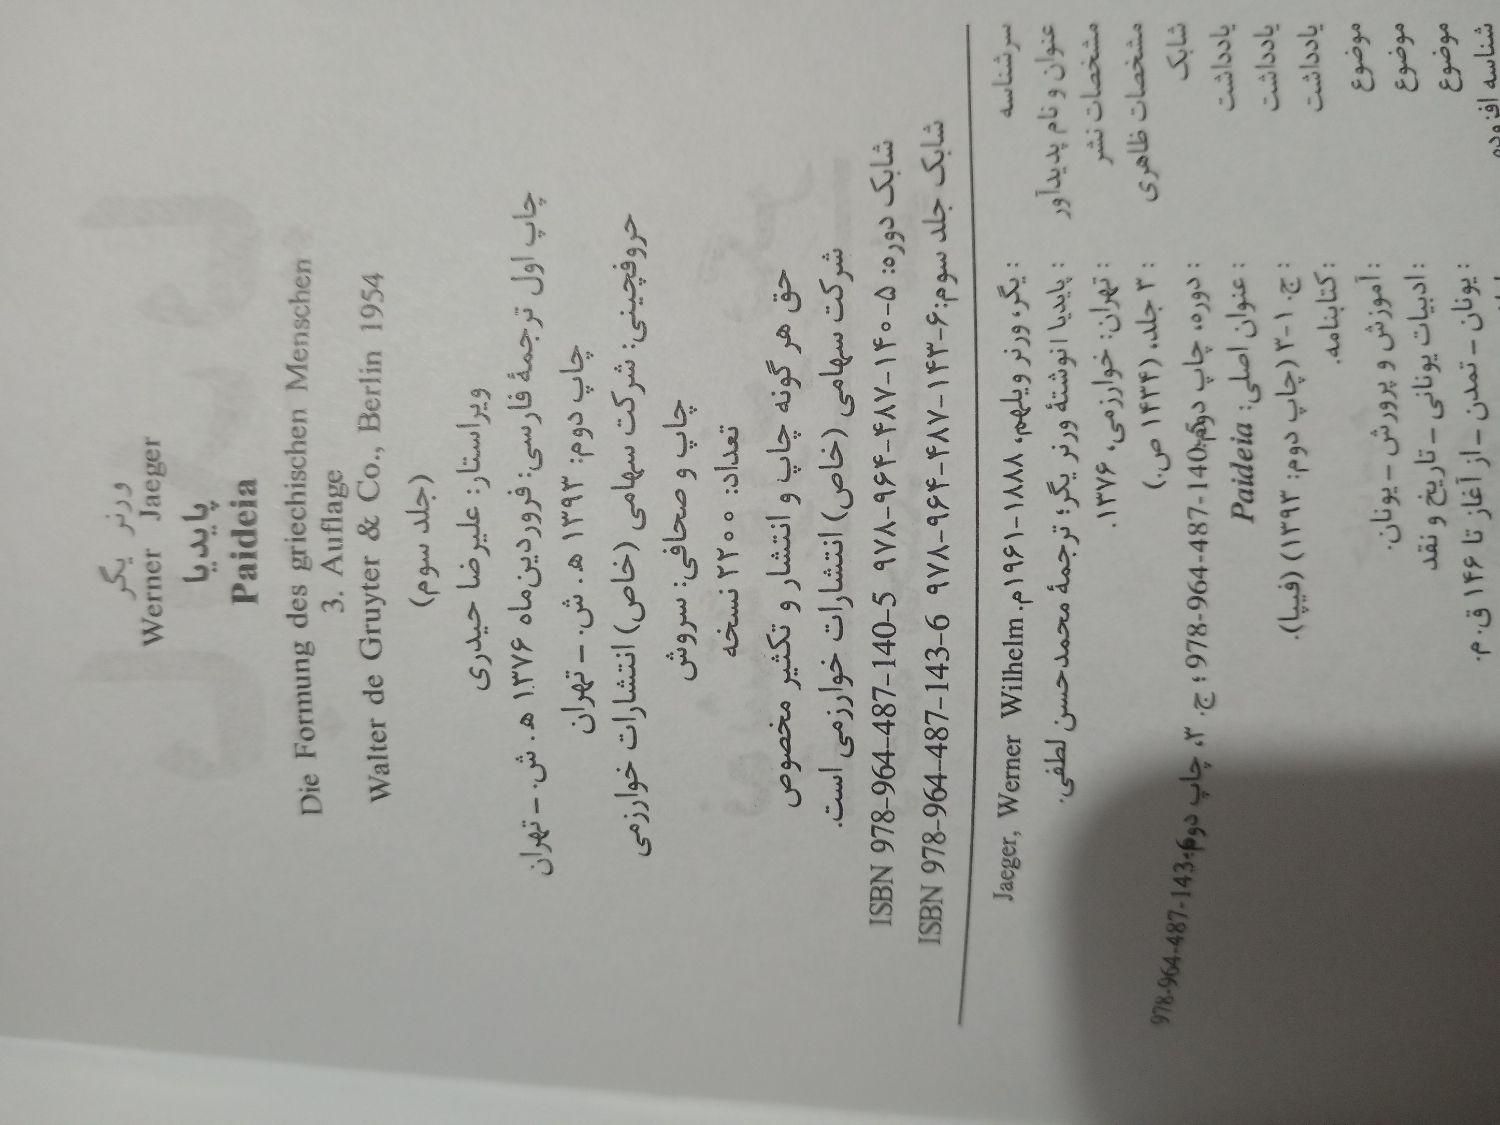 ورنر یگر
Werner Jaeger
پایدیا
Paideia
Die Formung des griechischen Menschen
3. Auflage
Walter de Gruyter & Co., Berlin 1954
(جلد سوم)
ویراستار: علیرضا حیدری
چاپ اول ترجمهٔ فارسی: فروردین‌ماه ۱۳۷۶ ه‍. ش. – تهران
چاپ دوم: ۱۳۹۳ ه‍. ش. – تهران
حروفچینی: شرکت سهامی (خاص) انتشارات خوارزمی
چاپ و صحافی: سروش
تعداد: ۲۲۰۰ نسخه
حق هر گونه چاپ و انتشار و تکثیر مخصوص
شرکت سهامی (خاص) انتشارات خوارزمی است.
شابک دوره: ۵-۱۴۰-۴۸۷-۹۶۴-۹۷۸ ISBN 978-964-487-140-5
شابک جلد سوم: ۶-۱۴۳-۴۸۷-۹۶۴-۹۷۸ ISBN 978-964-487-143-6
سرشناسه : یگر، ورنر ویلهم، ۱۸۸۸-۱۹۶۱م. Jaeger, Werner Wilhelm
عنوان و نام پدیدآور : پایدیا/ نوشتهٔ ورنر یگر؛ ترجمهٔ محمدحسن لطفی.
مشخصات نشر : تهران: خوارزمی، ۱۳۷۶.
مشخصات ظاهری : ۳ جلد، (۱۴۳۴ ص.)
شابک : دوره، چاپ دوم: 978-964-487-140-5؛ ج. ۳، چاپ دوم: 978-964-487-143-6
یادداشت : عنوان اصلی: Paideia
یادداشت : ج. ۱-۳ (چاپ دوم: ۱۳۹۳) (فیپا).
یادداشت : کتابنامه.
موضوع : آموزش و پرورش – یونان.
موضوع : ادبیات یونانی – تاریخ و نقد
موضوع : یونان – تمدن – از آغاز تا ۱۴۶ ق. م.
شناسه افزوده